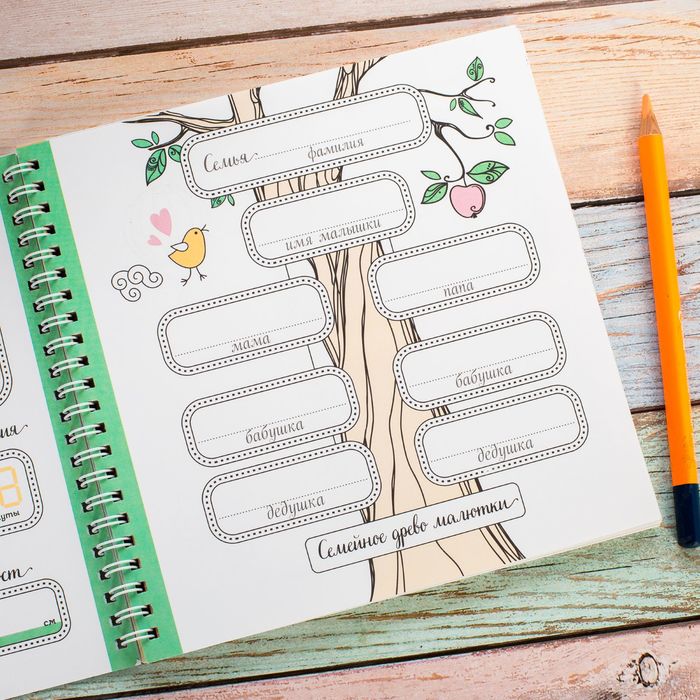 Семья
фамилия
имя малышки
папа
мама
бабушка
бабушка
дедушка
дедушка
Семейное древо малютки
8
см